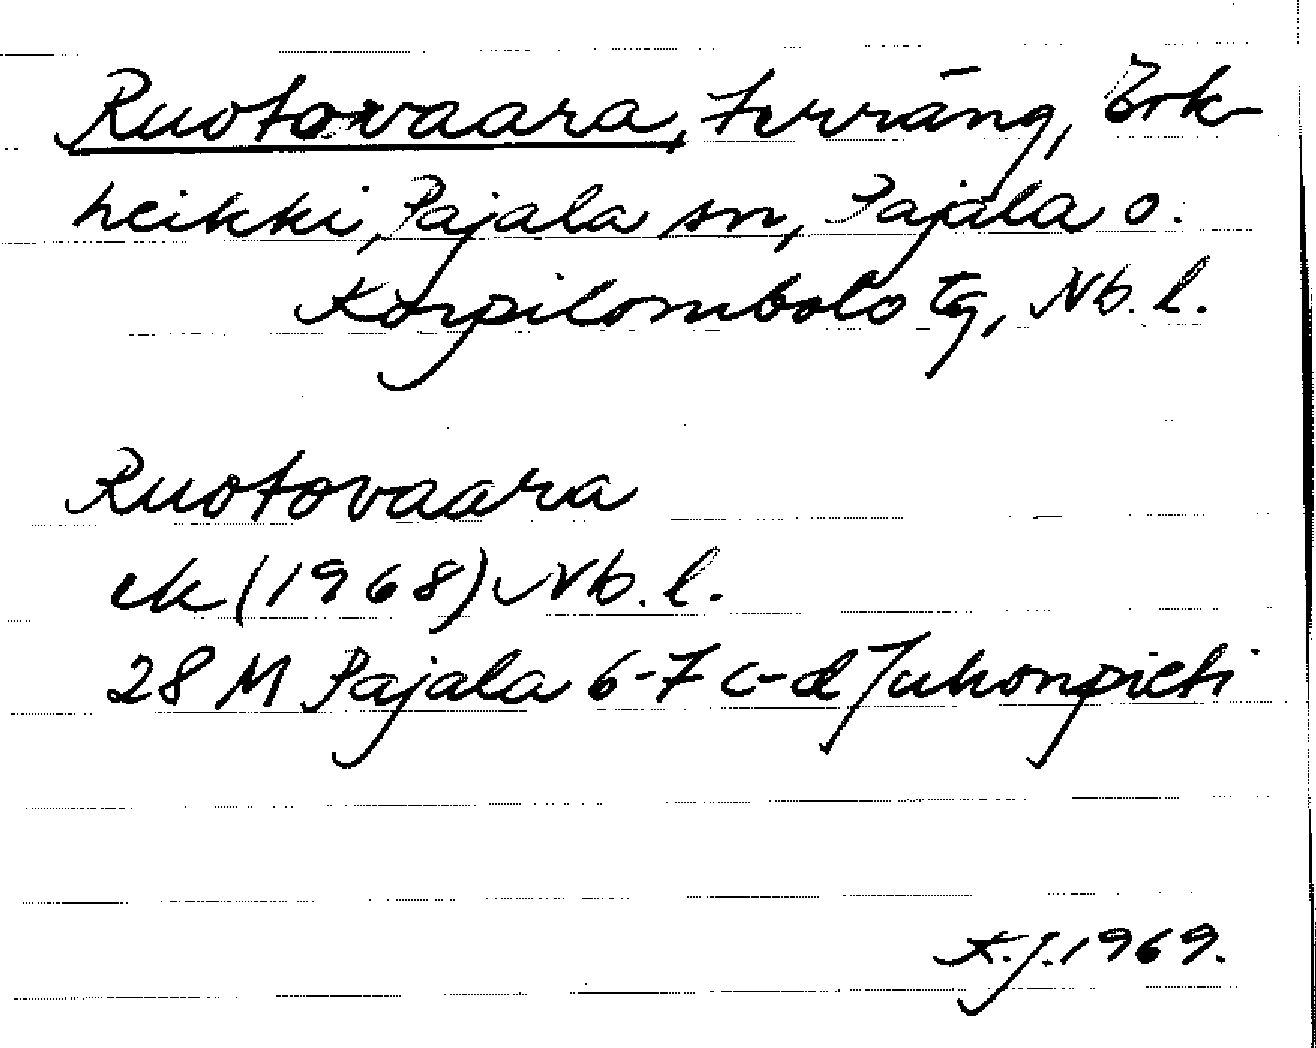 Ruotovaara, terräng, Erk-
heikki, Pajala sn, Pajala o.
Korpilombolo tg, Nb. l.
Ruotovaara
ek (1968) Nb. l.
28 M Pajala 6-7 c-d Juhonpieti
K.J. 1969.